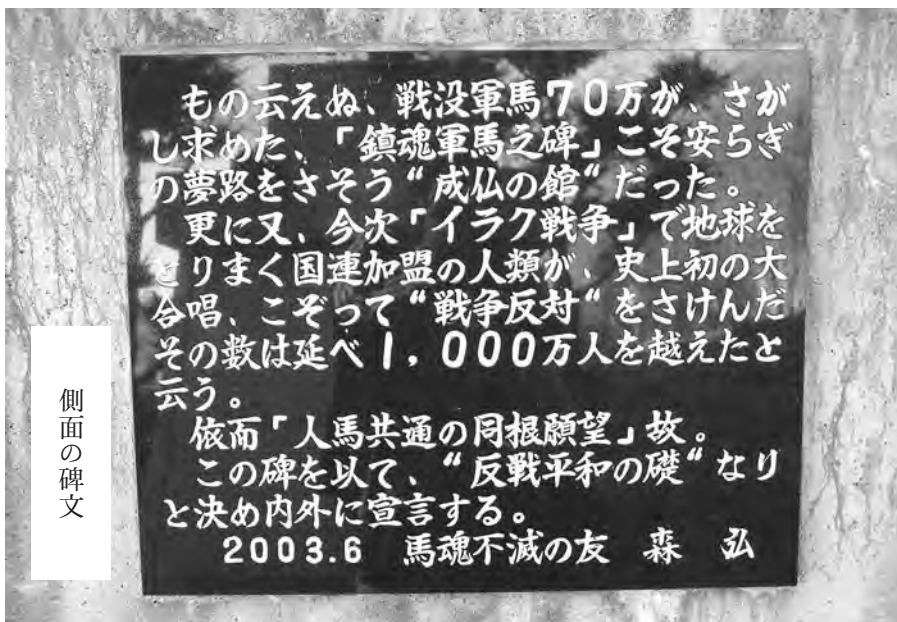 もの云えぬ、戦没軍馬70万が、さが
し求めた、「鎮魂軍馬之碑」こそ安らぎ
の夢路をさそう“成仏の館“だった。
更に又、今次「イラク戦争」で地球を
とりまく国連加盟の人類が、史上初の大
合唱、こぞって“戦争反対“をさけんだ
その数は延べ1,000万人を越えたと
云う。
依而「人馬共通の同根願望」故。
この碑を以て、“反戦平和の礎“なり
と決め内外に宣言する。
2003.6 馬魂不滅の友 森 弘
側面の碑文